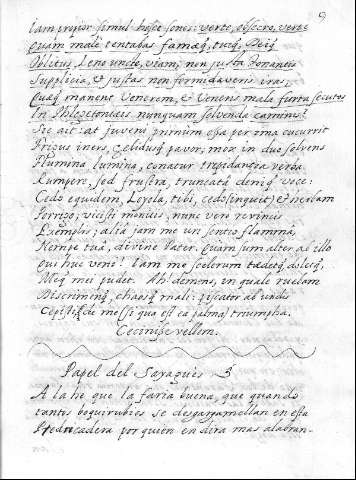 9
iam propior simul hospes sones: verte, obsecro, verte
quam malè tentabas famaeq, tuaeq, Deiq
Oblitus, Leno uncte, viam; non justa Tonantis
Supplicia, et justas non formidaveris iras,
Quaeq manent Venerem, et Veneris mala furta secutos
In Phlegetonteis nunquam solvenda caminis?
Sic ait: at juveni primum per ima cucurrit
Frigus iners, et pavor; mox in duo solvens
Flumina lumina, conatur trepidantia verba
Rumpere, sed frustra, truncataq denique voce:
Cedo equidem, Loyola, tibi, cedo (inquit) et nefdam
Porrigo; vicisti monitis, nunc vero revincis
Exemplis; alia jam me in sentio flamma,
Nempe tua, divine Pater, quam sum alter ab illo
Qui huc veni! Iam me scelerum taedetq, doletq,
Meiq mei pudet. Ah! demens, in quale ruebam
Discrimenq, chaosq mali: piscator ab undis
de me (si qua est ea palma) triumpha.
Cecinisse vellem.
Papel del Saragués 3
A la he que la faria buena, que quando
tantos boquirubios se desgargamellan en esta
Predicadera por quien endira mas alaban-